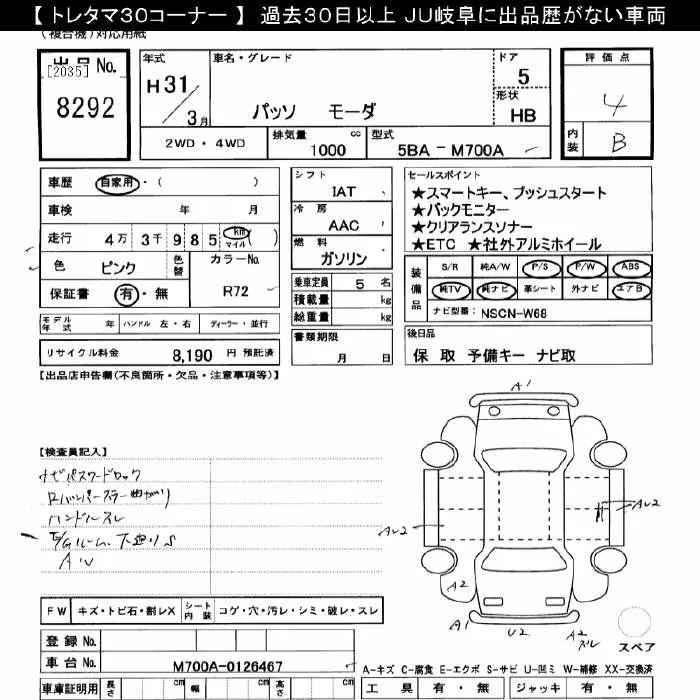 【 トレタマ30コーナー 】 過去30日以上 JU岐阜に出品歴がない車両
(複合機)対応用紙
出品No.
[2035]
8292
年式
H31/3月
車名・グレード
パッソ モーダ
ドア
5
形状
HB
評価点
4
内装
B
2WD ・ 4WD
排気量 cc
1000
型式
5BA - M700A
車歴 自家用・( )
車検 年 月
走行 4万 3千 985 km マイル ( )
色 ピンク 色替
カラーNo.
R72
保証書 有・無
モデル年式 年 ハンドル 左・右 ディーラー・並行
リサイクル料金 8,190 円 預託済
シフト
IAT
冷房
AAC
燃料
ガソリン
乗車定員 5 名
積載量 kg
総重量 kg
書類期限
月 日
セールスポイント
★スマートキー、プッシュスタート
★バックモニター
★クリアランスソナー
★ETC ★社外アルミホイール
装備品
S/R 純A/W P/S P/W ABS
純TV 純ナビ 革シート 外ナビ エアB
ナビ型番: NSCN-W68
後日品
保 取 予備キー ナビ取
【出品店申告欄(不良箇所・欠品・注意事項等)】
【検査員記入】
ナビパスワードロック
ハンドルスレ
AU
A1
AU2
AU2
A2
A1
U2
A2
スレ
スペア
FW キズ・トビ石・割レX シート内装 コゲ・穴・汚レ・シミ・破レ・スレ
登録No.
車台No. M700A-0126467
車庫証明用 長さ cm 幅 cm 高さ cm
A-キズ C-腐食 E-エクボ S-サビ U-凹ミ W-補修 XX-交換済
工具 有・無 ジャッキ 有・無